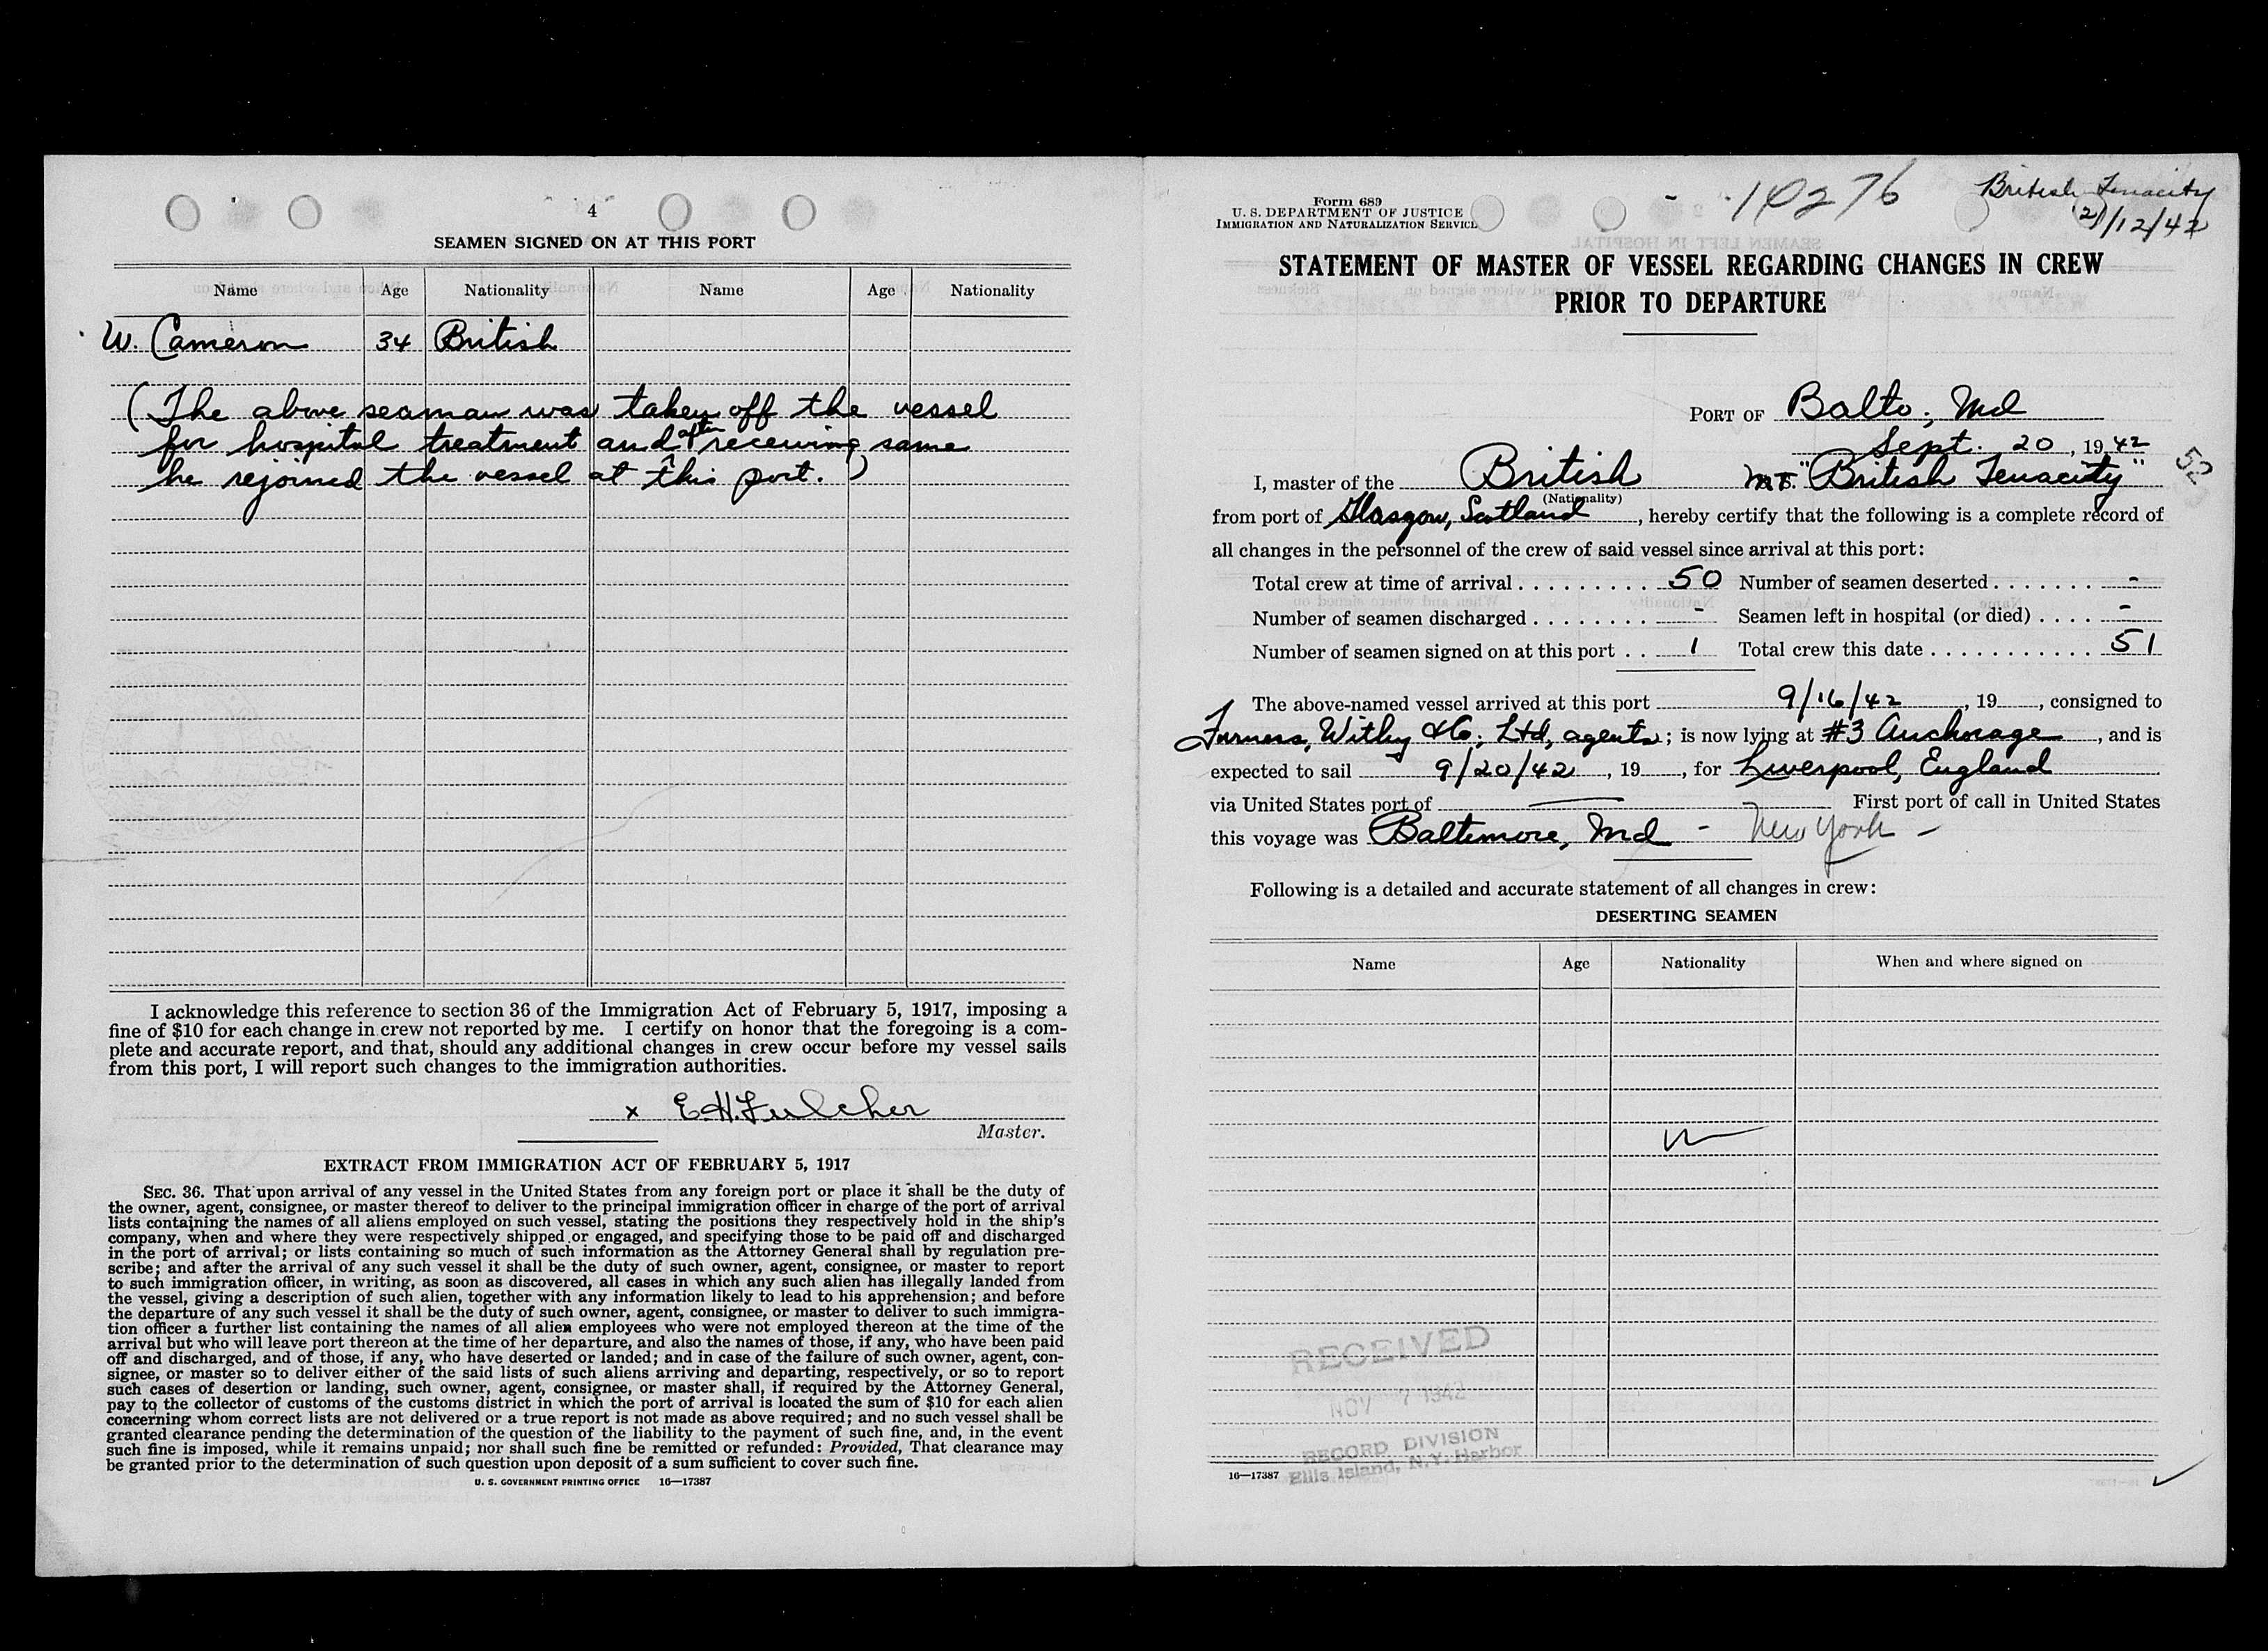 4
SEAMEN SIGNED ON AT THIS PORT
Name Age Nationality Name Age Nationality
W. Cameron 34 British
(The above seaman was taken off the vessel
for hospital treatment and after receiving same
he rejoined the vessel at this port.)
I acknowledge this reference to section 36 of the Immigration Act of February 5, 1917, imposing a
fine of $10 for each change in crew not reported by me. I certify on honor that the foregoing is a com-
plete and accurate report, and that, should any additional changes in crew occur before my vessel sails
from this port, I will report such changes to the immigration authorities.
x E.H.Fulcher
Master.
EXTRACT FROM IMMIGRATION ACT OF FEBRUARY 5, 1917
SEC. 36. That upon arrival of any vessel in the United States from any foreign port or place it shall be the duty of
the owner, agent, consignee, or master thereof to deliver to the principal immigration officer in charge of the port of arrival
lists containing the names of all aliens employed on such vessel, stating the positions they respectively hold in the ship's
company, when and where they were respectively shipped or engaged, and specifying those to be paid off and discharged
in the port of arrival; or lists containing so much of such information as the Attorney General shall by regulation pre-
scribe; and after the arrival of any such vessel it shall be the duty of such owner, agent, consignee, or master to report
to such immigration officer, in writing, as soon as discovered, all cases in which any such alien has illegally landed from
the vessel, giving a description of such alien, together with any information likely to lead to his apprehension; and before
the departure of any such vessel it shall be the duty of such owner, agent, consignee, or master to deliver to such immigra-
tion officer a further list containing the names of all alien employees who were not employed thereon at the time of the
arrival but who will leave port thereon at the time of her departure, and also the names of those, if any, who have been paid
off and discharged, and of those, if any, who have deserted or landed; and in case of the failure of such owner, agent, con-
signee, or master so to deliver either of the said lists of such aliens arriving and departing, respectively, or so to report
such cases of desertion or landing, such owner, agent, consignee, or master shall, if required by the Attorney General,
pay to the collector of customs of the customs district in which the port of arrival is located the sum of $10 for each alien
concerning whom correct lists are not delivered or a true report is not made as above required; and no such vessel shall be
granted clearance pending the determination of the question of the liability to the payment of such fine, and, in the event
such fine is imposed, while it remains unpaid; nor shall such fine be remitted or refunded: Provided, That clearance may
be granted prior to the determination of such question upon deposit of a sum sufficient to cover such fine.
U. S. GOVERNMENT PRINTING OFFICE 16—17387
Form 689
U. S. DEPARTMENT OF JUSTICE
IMMIGRATION AND NATURALIZATION SERVICE
10276
British Tenacity
21/12/42
STATEMENT OF MASTER OF VESSEL REGARDING CHANGES IN CREW
PRIOR TO DEPARTURE
PORT OF Balto., Md
Sept. 20, 1942
52
I, master of the British M.T. "British Tenacity"
(Nationality)
from port of Glasgow, Scotland, hereby certify that the following is a complete record of
all changes in the personnel of the crew of said vessel since arrival at this port:
Total crew at time of arrival . . . . . . . . . . 50 Number of seamen deserted . . . . . . . -
Number of seamen discharged . . . . . . . . - Seamen left in hospital (or died) . . . . -
Number of seamen signed on at this port . . 1 Total crew this date . . . . . . . . . . . . 51
The above-named vessel arrived at this port 9/16/42, 19 , consigned to
Furness, Withy & Co., Ltd, agents; is now lying at #3 Anchorage, and is
expected to sail 9/20/42, 19 , for Liverpool, England
via United States port of — First port of call in United States
this voyage was Baltimore, Md - New York -
Following is a detailed and accurate statement of all changes in crew:
DESERTING SEAMEN
Name Age Nationality When and where signed on
RECEIVED
NOV 7 1942
RECORD DIVISION
Ellis Island, N.Y. Harbor
16—17387